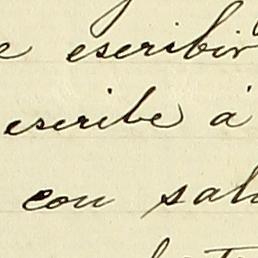 e escribir
escribe á
con salu